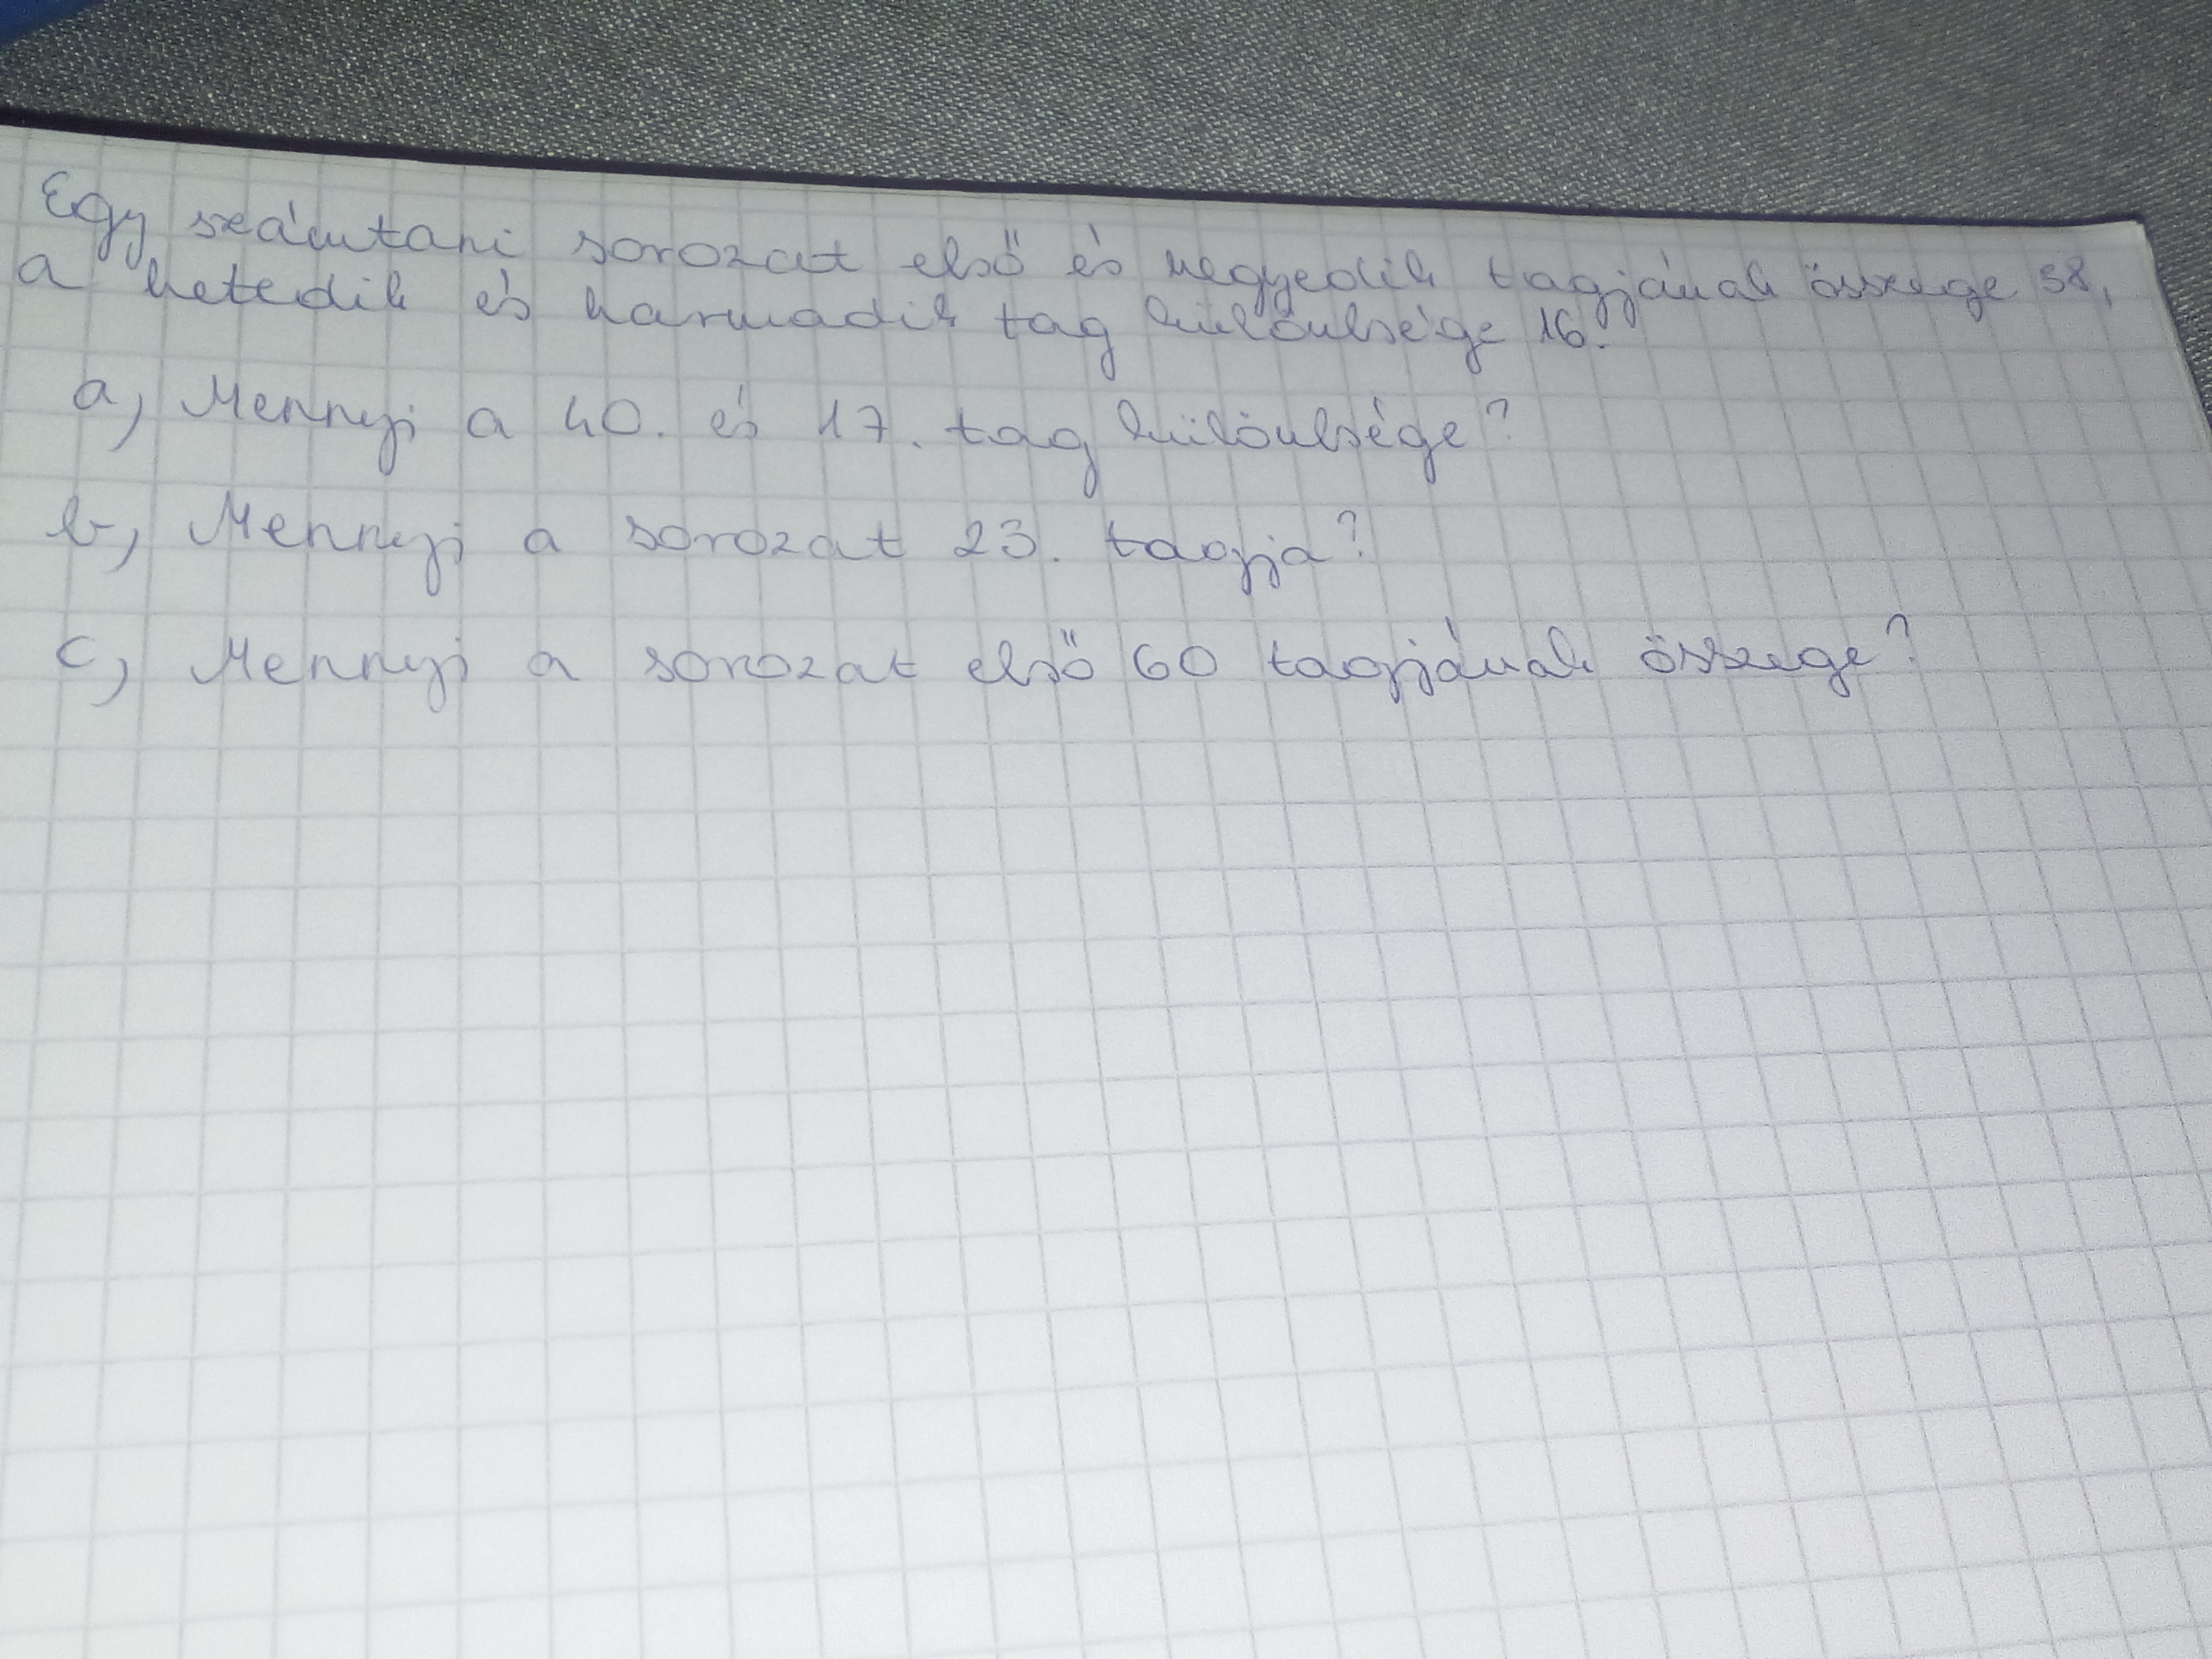 Egy számtani sorozat első és negyedik tagjának összege 38,
a hetedik és harmadik tag különbsége 16.
a, Mennyi a 40. és 17. tag különbsége?
b, Mennyi a sorozat 23. tagja?
c, Mennyi a sorozat első 60 tagjának összege?